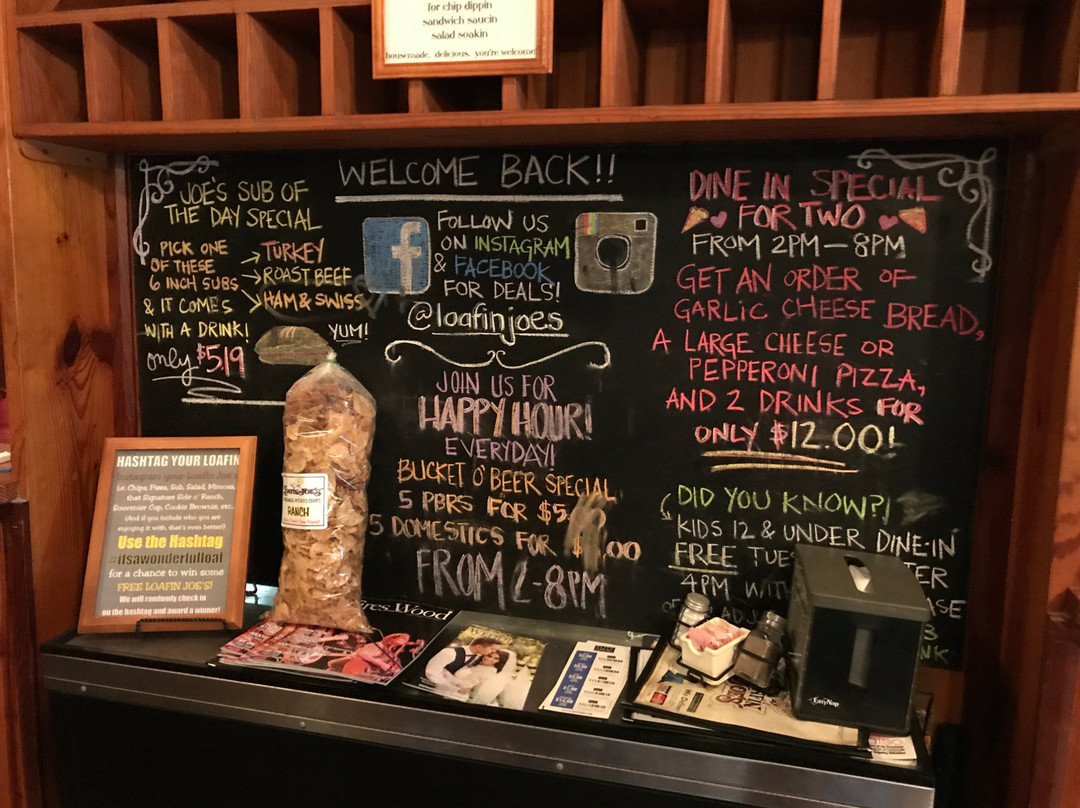 for chip dippin
sandwich saucin
salad soakin
housemade. delicious. you're welcome!
JOE'S SUB OF
THE DAY SPECIAL
PICK ONE
OF THESE
6 INCH SUBS
& IT COMES
WITH A DRINK!
only $5.19
TURKEY
ROAST BEEF
HAM & SWISS
YUM!
WELCOME BACK!!
FOLLOW US
ON INSTAGRAM
& FACEBOOK
FOR DEALS!
@loafinjoes
JOIN US FOR
HAPPY HOUR!
EVERYDAY!
BUCKET O' BEER SPECIAL
5 PBRS FOR $5.
5 DOMESTICS FOR $ .00
FROM 2-8PM
DINE IN SPECIAL
FOR TWO
FROM 2PM - 8PM
GET AN ORDER OF
GARLIC CHEESE BREAD,
A LARGE CHEESE OR
PEPPERONI PIZZA,
AND 2 DRINKS FOR
ONLY $12.00!
DID YOU KNOW?!
KIDS 12 & UNDER DINE-IN
FREE TUES
4PM WITH
HASHTAG YOUR LOAFIN
Instagram your Loafin Joe's
i.e. Chips, Pizza, Sub, Salad, Mimosa,
that Signature Side o' Ranch,
Souvenir Cup, Cookie Brownie, etc..
(And if you include who you are
enjoying it with, that's even better!)
Use the Hashtag
#itsawonderfulloaf
for a chance to win some
FREE LOAFIN JOE'S!
We will randomly check in
on the hashtag and award a winner!
RANCH
EasyNap